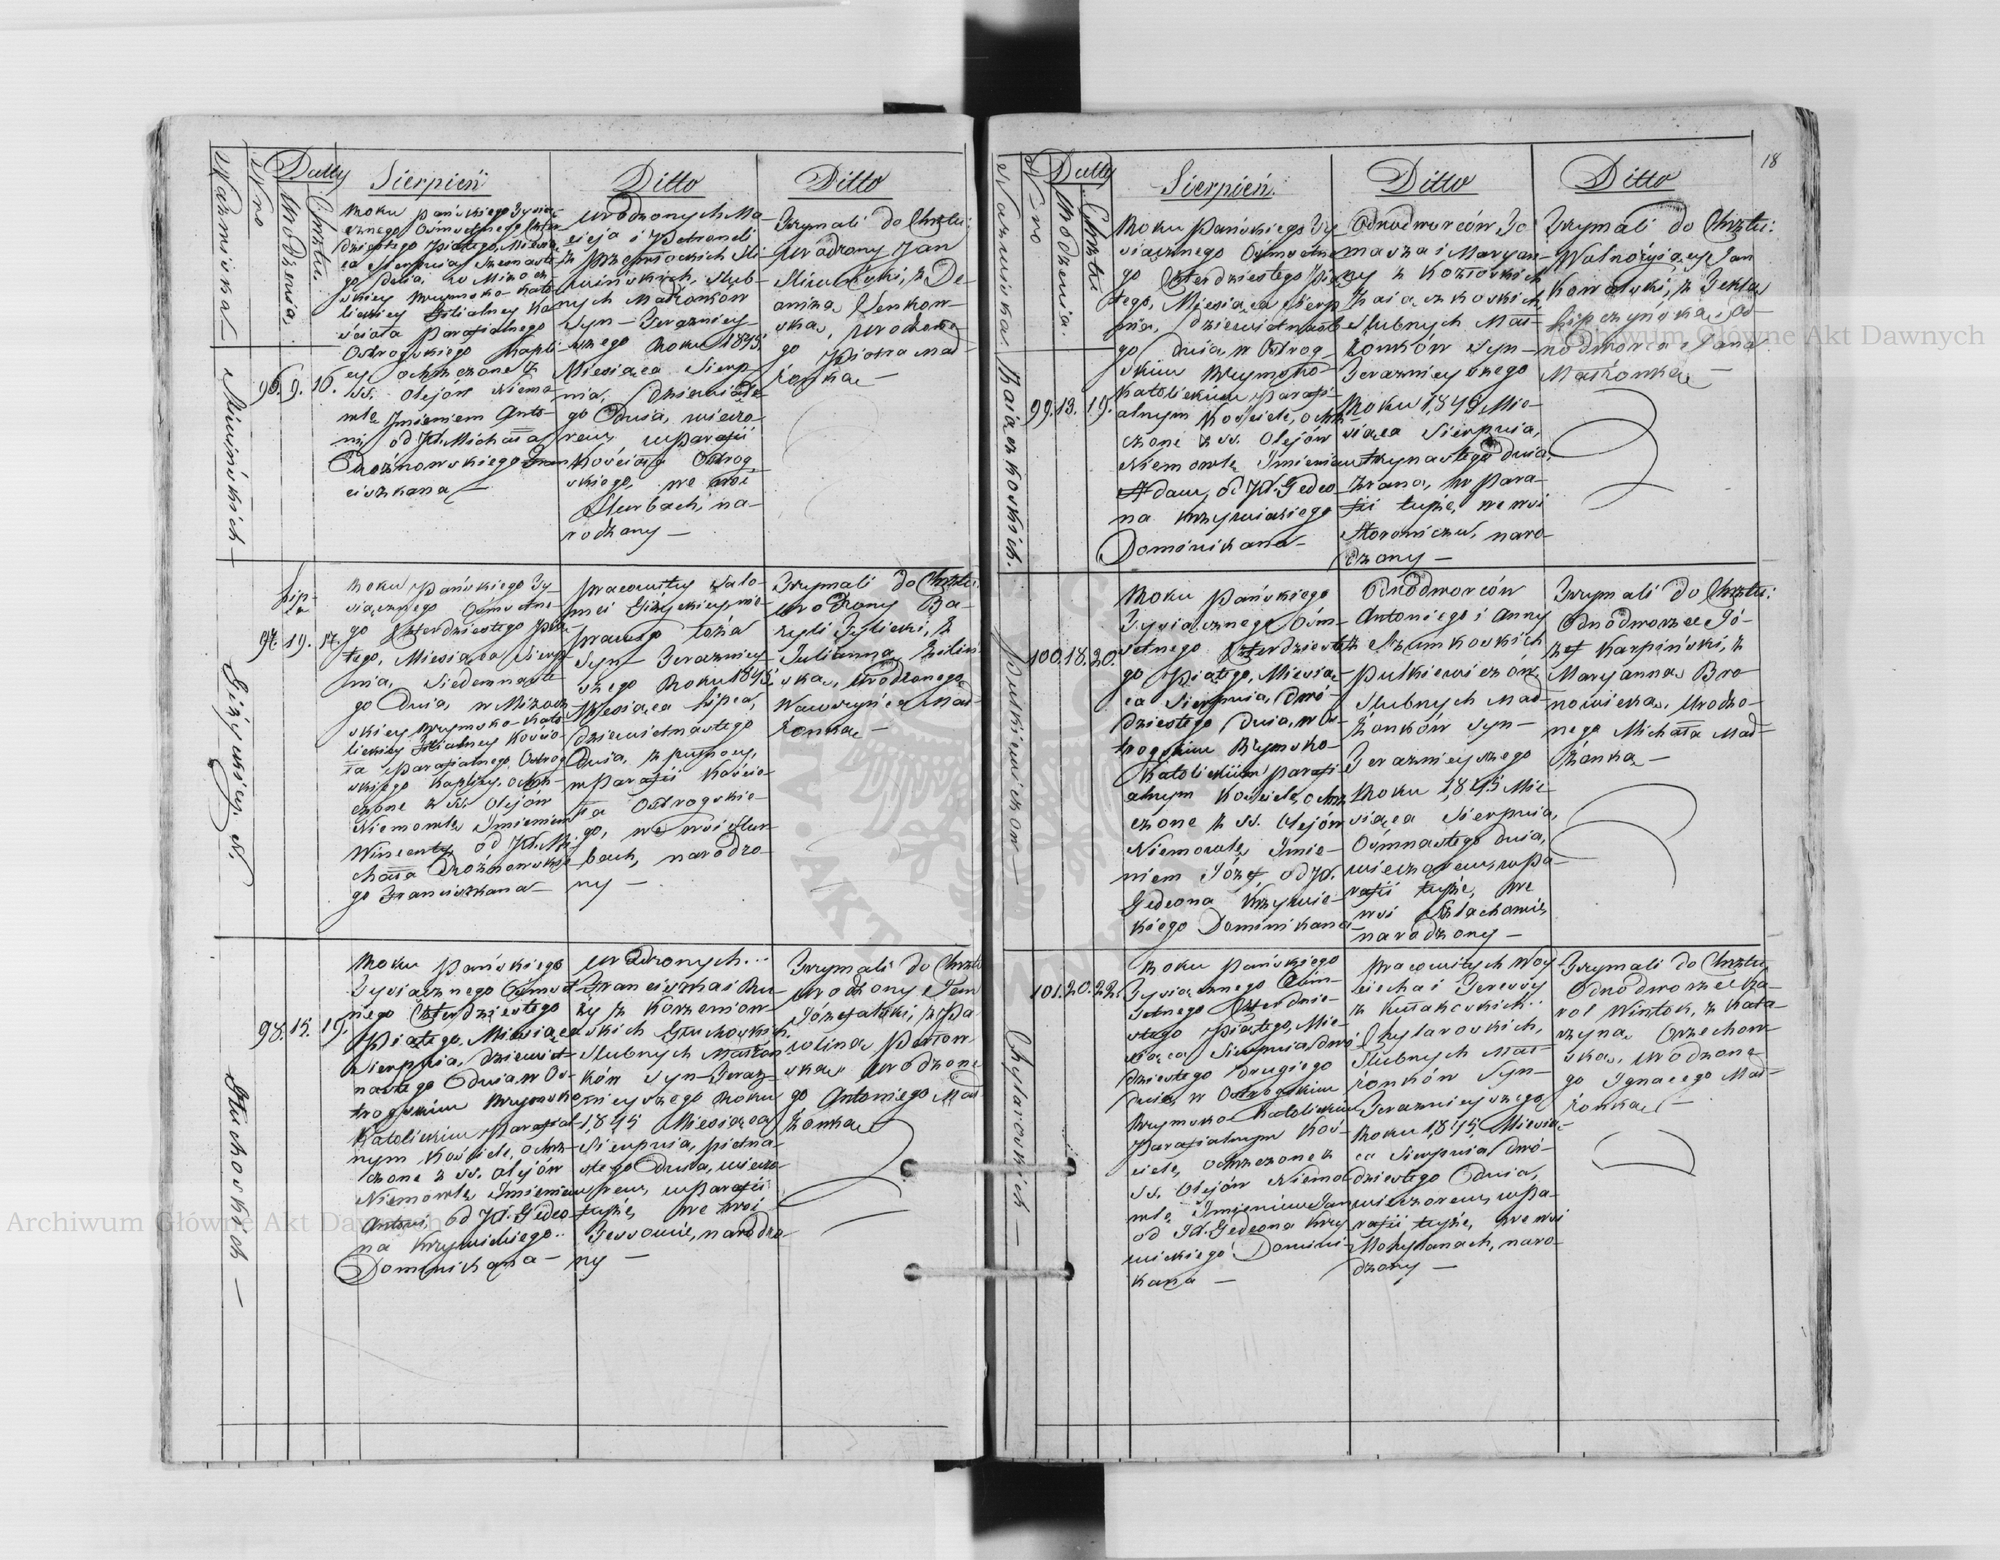 Nazwiska
Nro
Datty
Urodzenia.
Chrztu
Sierpień
Ditto
Ditto
Śliwińskich —
96. 9. 16.
Roku Pańskiego Tysią-
cznego Ośmsetnego Czter-
dziestego Piątego, Miesią-
ca Sierpnia Szesnaste-
go Dnia, w Mizocz-
skiey Rzymsko-Kato-
lickiey Filialney Ko-
ścioła Parafialnego
Ostrogskiego Kapli-
cy ochrzczone z
SS. Olejów Niemo-
wlę Imieniem Anto-
ni, od JX. Michała
Drożnowskiego Fran-
ciszkana —
Urodzonych Ma-
cieja i Petroneli
Śli-
wińskich, Ślub-
nych Małżonków
Syn — Terazniey-
szego Roku 1845,
Miesiąca Sierp-
nia, Dziewiąte-
go Dnia, wieczo-
rem, w Parafii
Kościoła Ostrog-
skiego, we wsi
Sturbach, na-
rodzony —
Trzymali do Chrztu:
Urodzony Jan
Śliwiński, z De-
Senkow-
ska, Urodzone-
go Piotra Mał-
żonka —
Lip-
ca
97. 19. 17.
Giżyckiey, N.
Roku Pańskiego Ty-
siącznego Ośmsetne-
go Czterdziestego Pią-
tego, Miesiąca Sierp-
nia, Siedemnaste-
go Dnia, w Mizocz-
skiey Rzymsko-Kato-
lickiey Filialney Kościo-
ła Parafialnego Ostrog-
skiego Kaplicy, ochrz-
czone z SS. Olejów
Niemowlę Imieniem
Wincenty od JX. Mi-
chała Drożnowskie-
go Franciszkana —
Pracowitey Salo-
mei Giżyckiey, nie-
prawego łoża
Syn — Terazniey-
szego Roku 1845,
Miesiąca Lipca,
dziewietnastego
Dnia, z południa,
w Parafii Kościo-
ła Ostrogskie-
go, we wsi Stur-
bach, narodzo-
ny —
Trzymali do Chrztu:
Urodzony Ba-
zyli
Julianna Zielin-
ska, Urodzonego
Wawrzyńca Mał-
żonka —
98. 15. 19.
Głuchowskich —
Roku Pańskiego
Tysiącznego Ośmset-
nego Czterdziestego
Piątego, Miesiąca
Sierpnia, dziewiet-
nastego Dnia, w Os-
trogskim Rzymsko
Katolickim Parafial-
nym Kościele, ochrz-
czone z SS. Olejów
Niemowlę Imieniem
Antoni, od JX. Gedeo-
na Krzywickiego
Dominikana —
Urodzonych
Franciszka i Ró-
ży z Korzeniow-
skich Głuchowskich,
Ślubnych Małżon-
ków Syn — Teraz-
nieyszego Roku
1,845 Miesiąca
Sierpnia, piętna-
stego Dnia, wieczo-
rem, w Parafii
tuyże, we wsi
narodzo-
ny —
Trzymali do Chrztu:
Urodzony
Józefatski, z Pa-
ulina
ska Urodzone-
go Antoniego Mał-
żonka
18
Nazwiska.
Nro
Datty
Urodzenia.
Chrztu
Sierpień.
Ditto
Ditto
99. 13. 19.
Zaiaczkoskich.
Roku Pańskiego Ty-
siącznego Ośmsetne-
go Czterdziestego Pią-
tego, Miesiąca Sierp-
nia, dziewietnaste-
go dnia, w Ostrog-
skim Rzymsko
Katolickim Parafi-
alnym Kościele, ochrz-
czone z SS. Olejów
Niemowlę Imieniem
Adam, od JX. Gedeo-
na Krzywickiego
Dominikana —
Odnodworców To-
masza i Maryan-
ny z Kozłoskich
Zaiaczkoskich
Ślubnych Mał-
żonków Syn —
Terazniejszego
Roku 1,845 Mie-
siąca Sierpnia,
trzynastego dnia,
zrana, w Para-
fii tuyże, we wsi
Storoniczu, naro-
dzony —
Trzymali do Chrztu:
Wolnożyiący Jan
Kowalski, z Tekla
Lipczyńska, Od-
nodworca Jana
Małżonka —
100. 18. 20.
Pułkiewiczow —
Roku Pańskiego
Tysiącznego Ośm-
setnego Czterdzieste-
go Piątego, Miesią-
ca Sierpnia, Dwó-
dziestego Dnia, w Os-
trogskim Rzymsko-
Katolickim Parafi-
alnym Kościele, ochrz-
czone z SS. Olejów
Niemowlę Imie-
niem Józef, od JX.
Gedeona Krzywic-
kiego Dominikana —
Odnodworców
Antoniego i Anny
z Szumkoskich
Pułkiewiczow,
Ślubnych Mał-
żonków Syn —
Terazniejszego
Roku 1,845 Mie-
siąca Sierpnia,
Ośmnastego dnia,
wieczorem, w Pa-
rafii tuyże, we
wsi Szlachowie,
narodzony —
Trzymali do Chrztu:
Odnodworzec Jó-
zef Karpiński, z
Maryanna Bro-
nowicka, Urodzo-
nego Michała Mał-
żonka —
101. 20. 22.
Chylarowskich —
Roku Pańskiego
Tysiącznego Ośm-
setnego Czterdzie-
stego Piątego, Mie-
siąca Sierpnia dwó-
dziestego Drugiego
Dnia, w Ostrogskim
Rzymsko Katolickim
Parafialnym Koś-
ciele, ochrzczone z
SS. Olejów Niemo-
wlę Imieniem Jan
od JX. Gedeona Krzy-
wickiego Domini-
kana —
Pracowitych Woy-
ciecha i Teressy
Chylarowskich,
Ślubnych Mał-
żonków Syn —
Terazniejszego
Roku 1,845 Miesią-
ca Sierpnia dwó-
dziestego Dnia,
wieczorem, w Pa-
rafii tuyże, we wsi
Mohylanach, naro-
dzony —
Trzymali do Chrztu,
Odnodworzec Ka-
rol Wintok, z Kata-
rzyna Orzechow-
ska, Urodzone-
go Ignacego Mał-
żonka —
Archiwum Główne Akt Dawnych
Archiwum Główne Akt Dawnych